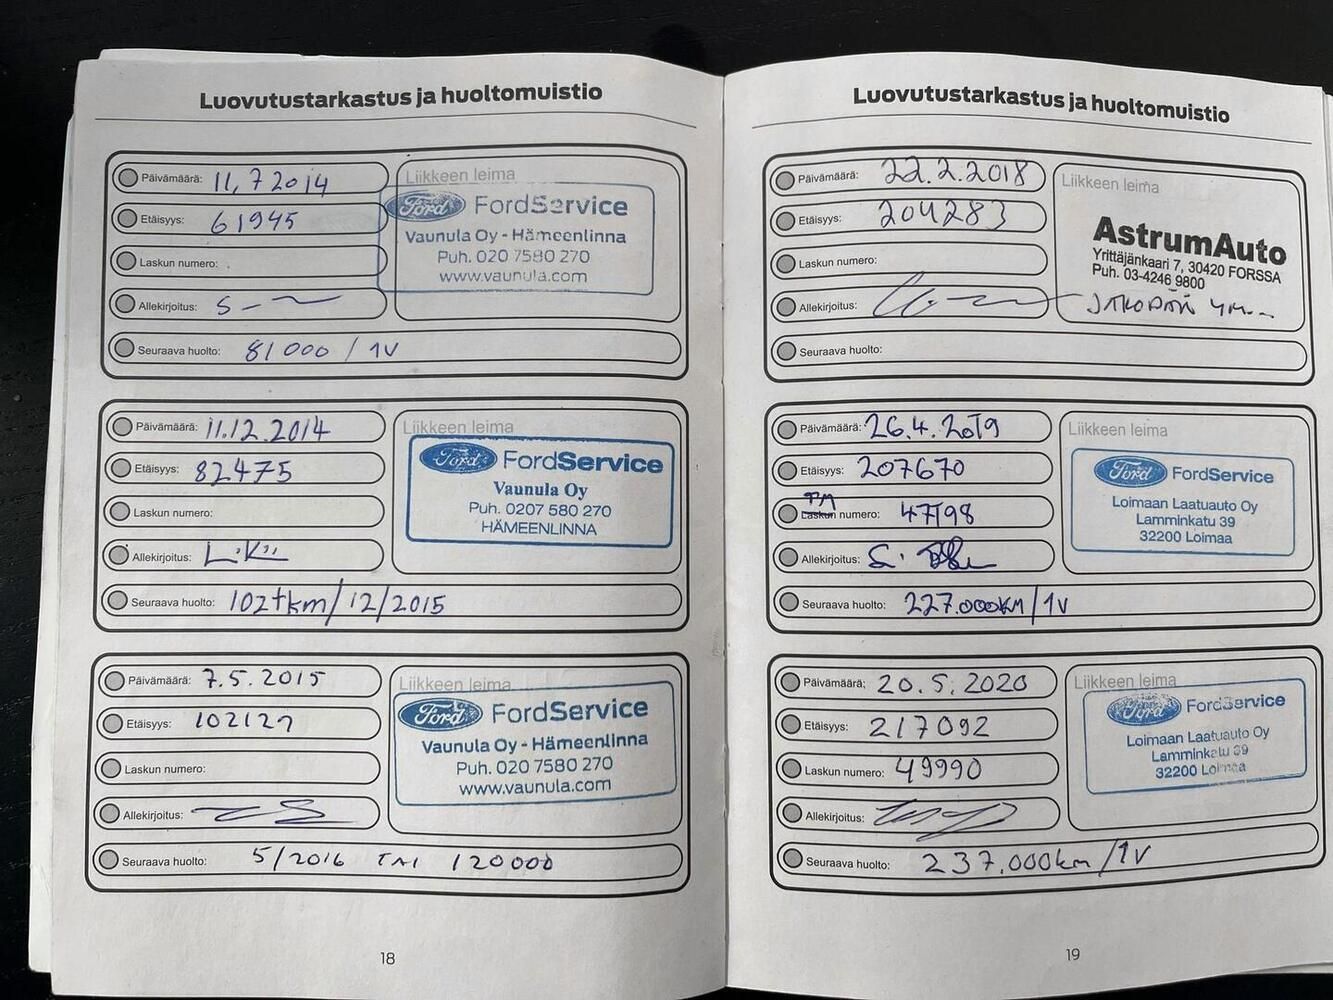 Luovutustarkastus ja huoltomuistio
Päivämäärä: 11.7 2014
Etäisyys: 61945
Laskun numero:
Allekirjoitus:
Seuraava huolto: 81000 / 1V
Liikkeen leima
Ford FordService
Vaunula Oy - Hämeenlinna
Puh. 020 7580 270
www.vaunula.com
Päivämäärä: 11.12.2014
Etäisyys: 82475
Laskun numero:
Allekirjoitus:
Seuraava huolto: 102tkm/12/2015
Liikkeen leima
Ford FordService
Vaunula Oy
Puh. 0207 580 270
HÄMEENLINNA
Päivämäärä: 7.5.2015
Etäisyys: 102127
Laskun numero:
Allekirjoitus:
Seuraava huolto: 5/2016 TAI 120000
Liikkeen leima
Ford FordService
Vaunula Oy - Hämeenlinna
Puh. 020 7580 270
www.vaunula.com
18
Luovutustarkastus ja huoltomuistio
Päivämäärä: 22.2.2018
Etäisyys: 204283
Laskun numero:
Allekirjoitus:
Seuraava huolto:
Liikkeen leima
AstrumAuto
Yrittäjänkaari 7, 30420 FORSSA
Puh. 03-4246 9800
Päivämäärä: 26.4.2019
Etäisyys: 207670
TM
Laskun numero: 47198
Allekirjoitus:
Seuraava huolto: 227.000KM/1V
Liikkeen leima
Ford FordService
Loimaan Laatuauto Oy
Lamminkatu 39
32200 Loimaa
Päivämäärä: 20.5.2020
Etäisyys: 217092
Laskun numero: 49990
Allekirjoitus:
Seuraava huolto: 237.000km/1V
Liikkeen leima
Ford FordService
Loimaan Laatuauto Oy
Lamminkatu 39
32200 Loimaa
19